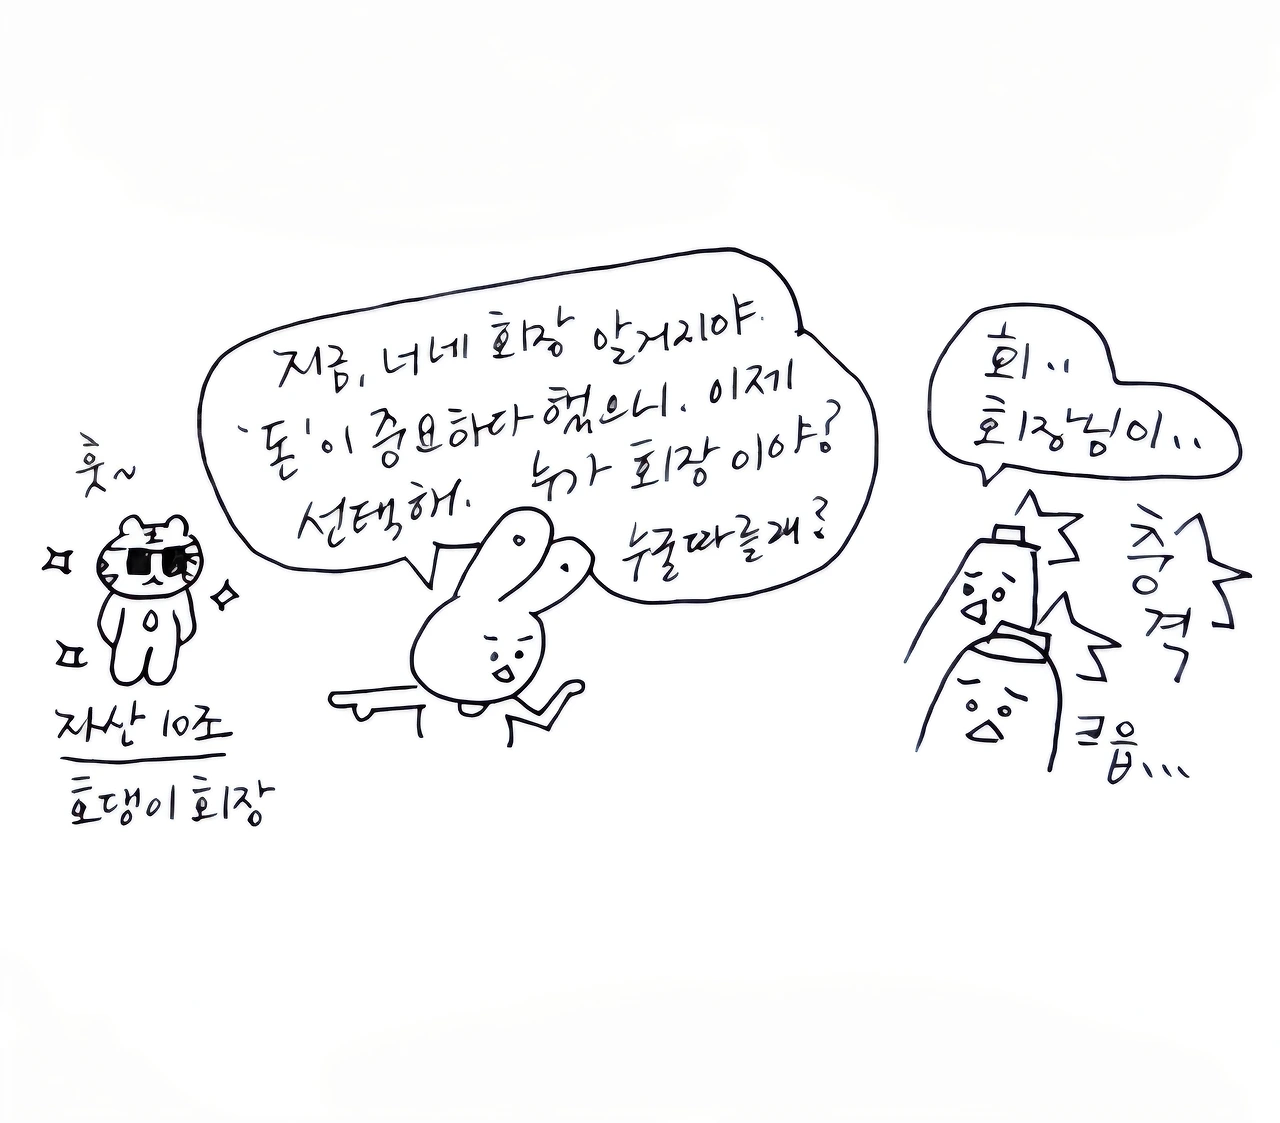 훗~
자산 10조
호댕이 회장
지금, 너네 회장 알거지야.
'돈'이 중요하다 했으니. 이제
선택해. 누가 회장이야?
누굴따를래?
회..
회장님이..
충
격
크읍...